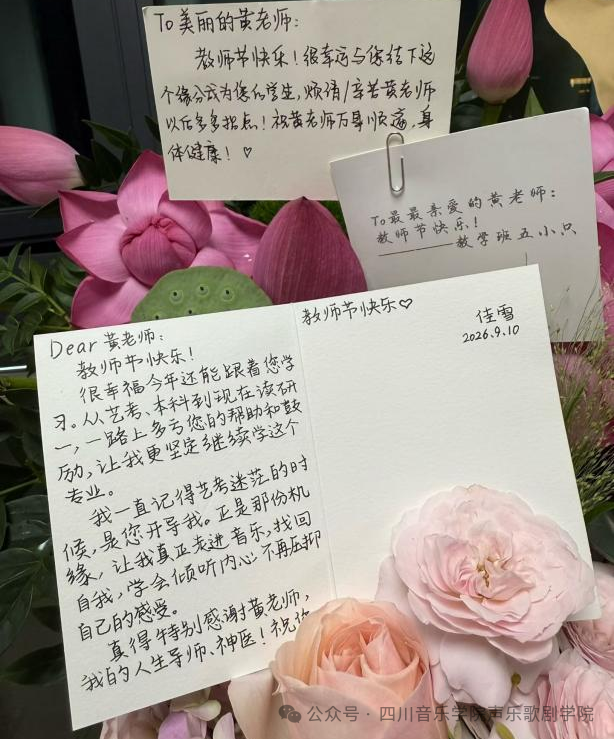 To美丽的黄老师：
教师节快乐！很幸运与您结下这
个缘分成为您的学生，烦请/辛苦黄老师
以后多多指点！祝黄老师万事顺遂，身
体健康！♡
To最最亲爱的黄老师：
教师节快乐！
——教学班五小只
Dear 黄老师：
教师节快乐！
很幸福今年还能跟着您学
习。从艺考、本科到现在读研
一，一路上多亏您的帮助和鼓
励，让我更坚定继续学这个
专业。
我一直记得艺考迷茫的时
候，是您开导我。正是那份机
缘，让我真正走进音乐，找回
自我，学会倾听内心 不再压抑
自己的感受。
真得特别感谢黄老师，
我的人生导师、神医！祝您
教师节快乐♡
佳雪
2026.9.10
公众号·四川音乐学院声乐歌剧学院